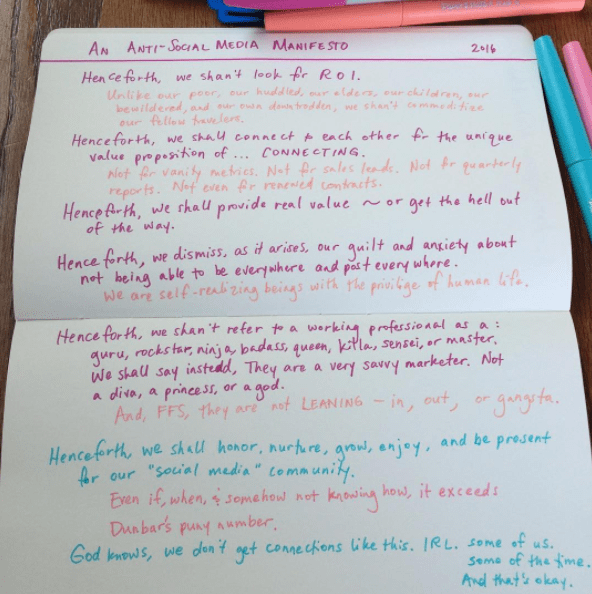 AN ANTI-SOCIAL MEDIA MANIFESTO 2016
Henceforth, we shan't look for ROI.
Unlike our poor, our huddled, our elders, our children, our
bewildered, and our own downtrodden, we shan't commoditize
our fellow travelers.
Henceforth, we shall connect to each other for the unique
value proposition of ... CONNECTING.
Not for vanity metrics. Not for sales leads. Not for quarterly
reports. Not even for renewed contracts.
Henceforth, we shall provide real value ~ or get the hell out
of the way.
Henceforth, we dismiss, as it arises, our guilt and anxiety about
not being able to be everywhere and post everywhere.
We are self-realizing beings with the privilige of human life.
Henceforth, we shan't refer to a working professional as a:
guru, rockstar, ninja, badass, queen, killa, sensei, or master.
We shall say instedd, They are a very savvy marketer. Not
a diva, a princess, or a god.
And, FFS, they are not LEANING - in, out, or gangsta.
Henceforth, we shall honor, nurture, grow, enjoy, and be present
for our "social media" community.
Even if, when, & somehow not knowing how, it exceeds
Dunbar's puny number.
God knows, we don't get connections like this. IRL. some of us.
Some of the time.
And that's okay.